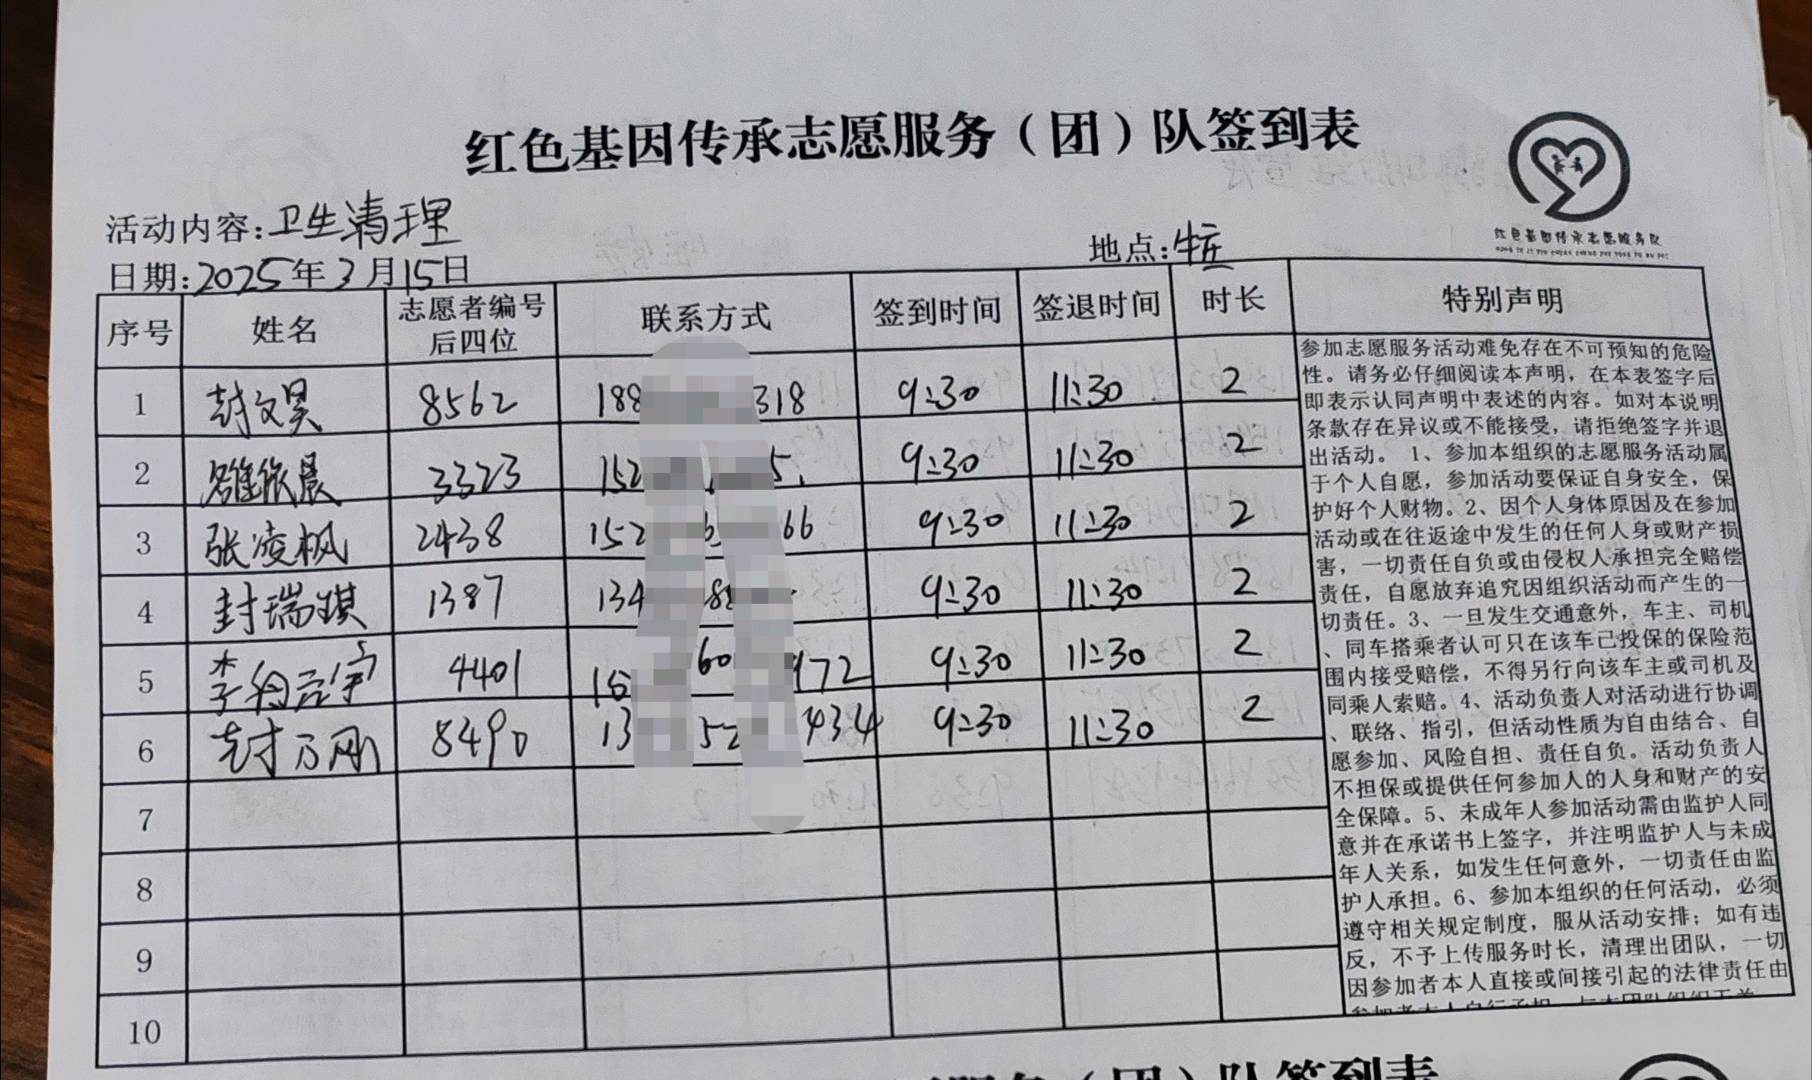 红色基因传承志愿服务（团）队签到表
红色基因传承志愿服务队
活动内容:卫生清理
地点:
日期:2025年3月15日
序号 姓名 志愿者编号后四位 联系方式 签到时间 签退时间 时长 特别声明
1 封文昊 8562 188 318 9:30 11:30 2
2 3323 152 5 9:30 11:30 2
3 张凌枫 2438 152 66 9:30 11:30 2
4 封瑞祺 1387 134 9:30 11:30 2
5 4401 60 972 9:30 11:30 2
6 封万刚 8490 13 52 434 9:30 11:30 2
7
8
9
10
参加志愿服务活动难免存在不可预知的危险
性。请务必仔细阅读本声明，在本表签字后
即表示认同声明中表述的内容。如对本说明
条款存在异议或不能接受，请拒绝签字并退
出活动。 1、参加本组织的志愿服务活动属
于个人自愿，参加活动要保证自身安全，保
护好个人财物。2、因个人身体原因及在参加
活动或在往返途中发生的任何人身或财产损
害，一切责任自负或由侵权人承担完全赔偿
责任，自愿放弃追究因组织活动而产生的一
切责任。3、一旦发生交通意外，车主、司机
、同车搭乘者认可只在该车已投保的保险范
围内接受赔偿，不得另行向该车主或司机及
同乘人索赔。4、活动负责人对活动进行协调
、联络、指引，但活动性质为自由结合、自
愿参加、风险自担、责任自负。活动负责人
不担保或提供任何参加人的人身和财产的安
全保障。5、未成年人参加活动需由监护人同
意并在承诺书上签字，并注明监护人与未成
年人关系，如发生任何意外，一切责任由监
护人承担。6、参加本组织的任何活动，必须
遵守相关规定制度，服从活动安排；如有违
反，不予上传服务时长，清理出团队，一切
因参加者本人直接或间接引起的法律责任由
（团）队签到表